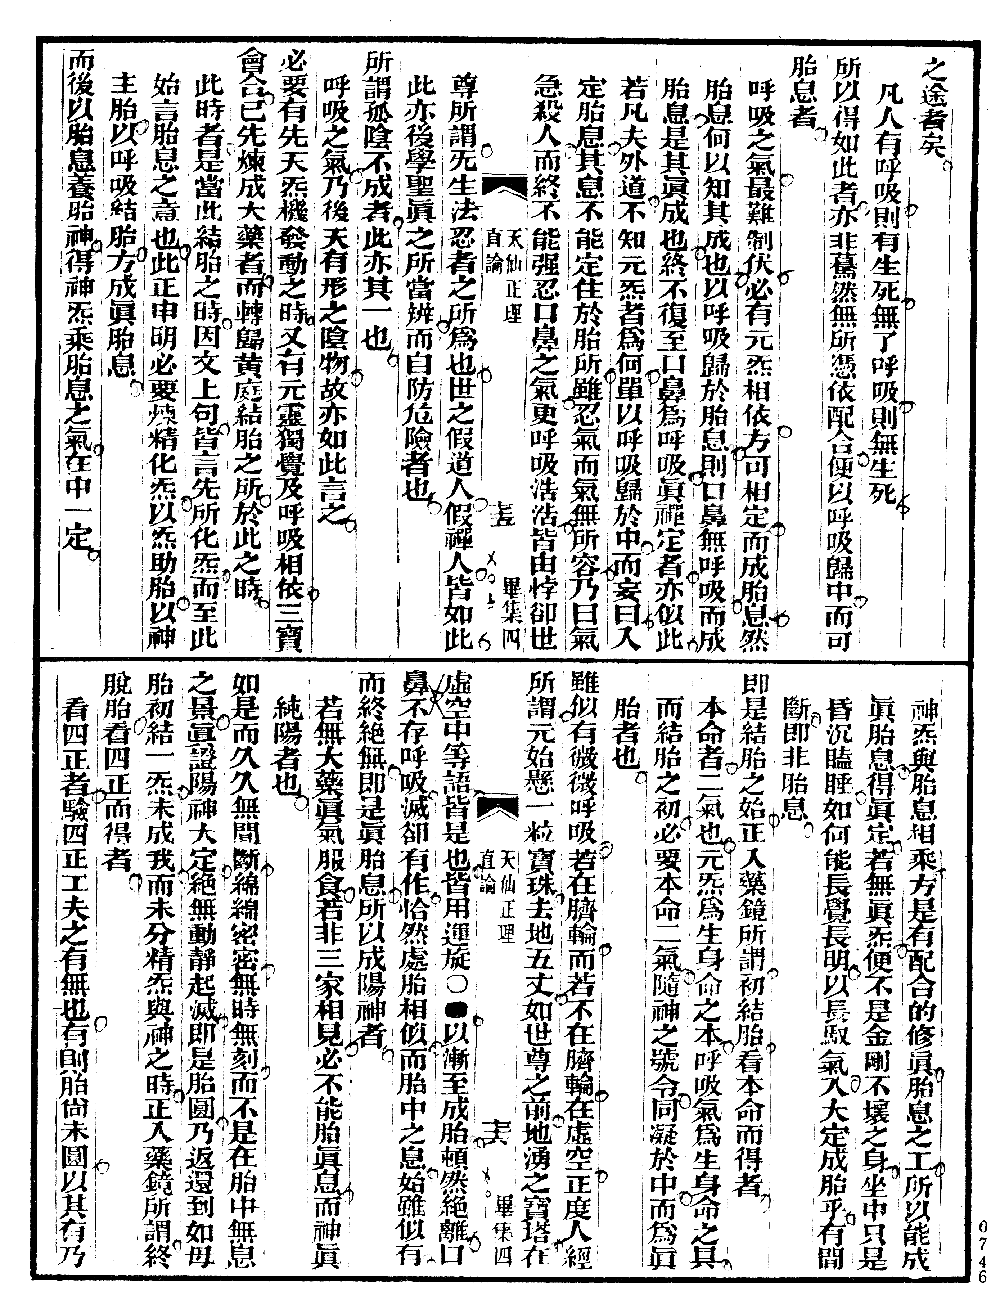 之途者矣
凡人有呼吸則有生死無了呼吸則無生死
所以得如此者亦非舊然無所憑依配合便以呼吸歸中而可
胎息者
呼吸之氣最難制伏必有元炁相依方可相定而成胎息然
胎息何以知其成也以呼吸歸於胎息則口鼻無呼吸而成
胎息是其眞成也終不復至口鼻爲呼吸眞禪定者亦似此
若凡夫外道不知元炁者爲何單以呼吸歸於中而妄曰入
定胎息其息不能定住於胎所雖忍氣而氣無所容乃曰氣
急殺人而終不能强忍口鼻之氣更呼吸浩浩皆由悖卻世
天仙正理
直論
畢集四
尊所謂无生法忍者之所爲也世之假道人假禪人皆如此
此亦後學聖眞之所當辨而自防危險者也
所謂孤陰不成者此亦其一也
呼吸之氣乃後天有形之陰物故亦如此言之
必要有先天炁機發動之時又有元靈獨覺及呼吸相依三寶
會合已先煉成大藥者而轉歸黃庭結胎之所於此之時
此時者是當此結胎之時因文上句皆言先所化炁而至此
始言胎息之意也此正申明必要煉精化炁以炁助胎以神
主胎以呼吸結胎方成眞胎息
而後以胎息養胎神得神炁乘胎息之氣在中一定
神炁與胎息相乘方是有配合的修眞胎息之工所以能成
眞胎息得眞定若無眞炁便不是金剛不壞之身坐中只是
昏沉瞌睡如何能長覺長明以長馭氣入大定成胎乎有間
斷即非胎息
即是結胎之始正入藥鏡所謂初結胎看本命而得者
本命者二氣也元炁爲生身命之本呼吸氣爲生身命之具
而結胎之初必要本命二氣隨神之號令同凝於中而爲眞
胎者也
雖似有微微呼吸若在臍輪而若不在臍輪在虛空正度人經
所謂元始懸一粒寶珠去地五丈如世尊之前地湧之寶塔在
天仙正理
直論
畢集四
虛空中等語皆是也皆用運旋○●以漸至成胎頓然絶離口
鼻不存呼吸滅卻有作恰然處胎相似而胎中之息始雖似有
而終絶無即是眞胎息所以成陽神者
若無大藥眞氣服食若非三家相見必不能胎眞息而神眞
純陽者也
如是而久久無間斷綿綿密密無時無刻而不是在胎中無息
之景眞證陽神大定絶無動靜起滅即是胎圓乃返還到如母
胎初結一炁未成我而未分精炁與神之時正入藥鏡所謂終
脫胎看四正而得者
看四正者驗四正工夫之有無也有則胎尚未圓以其有乃
0746